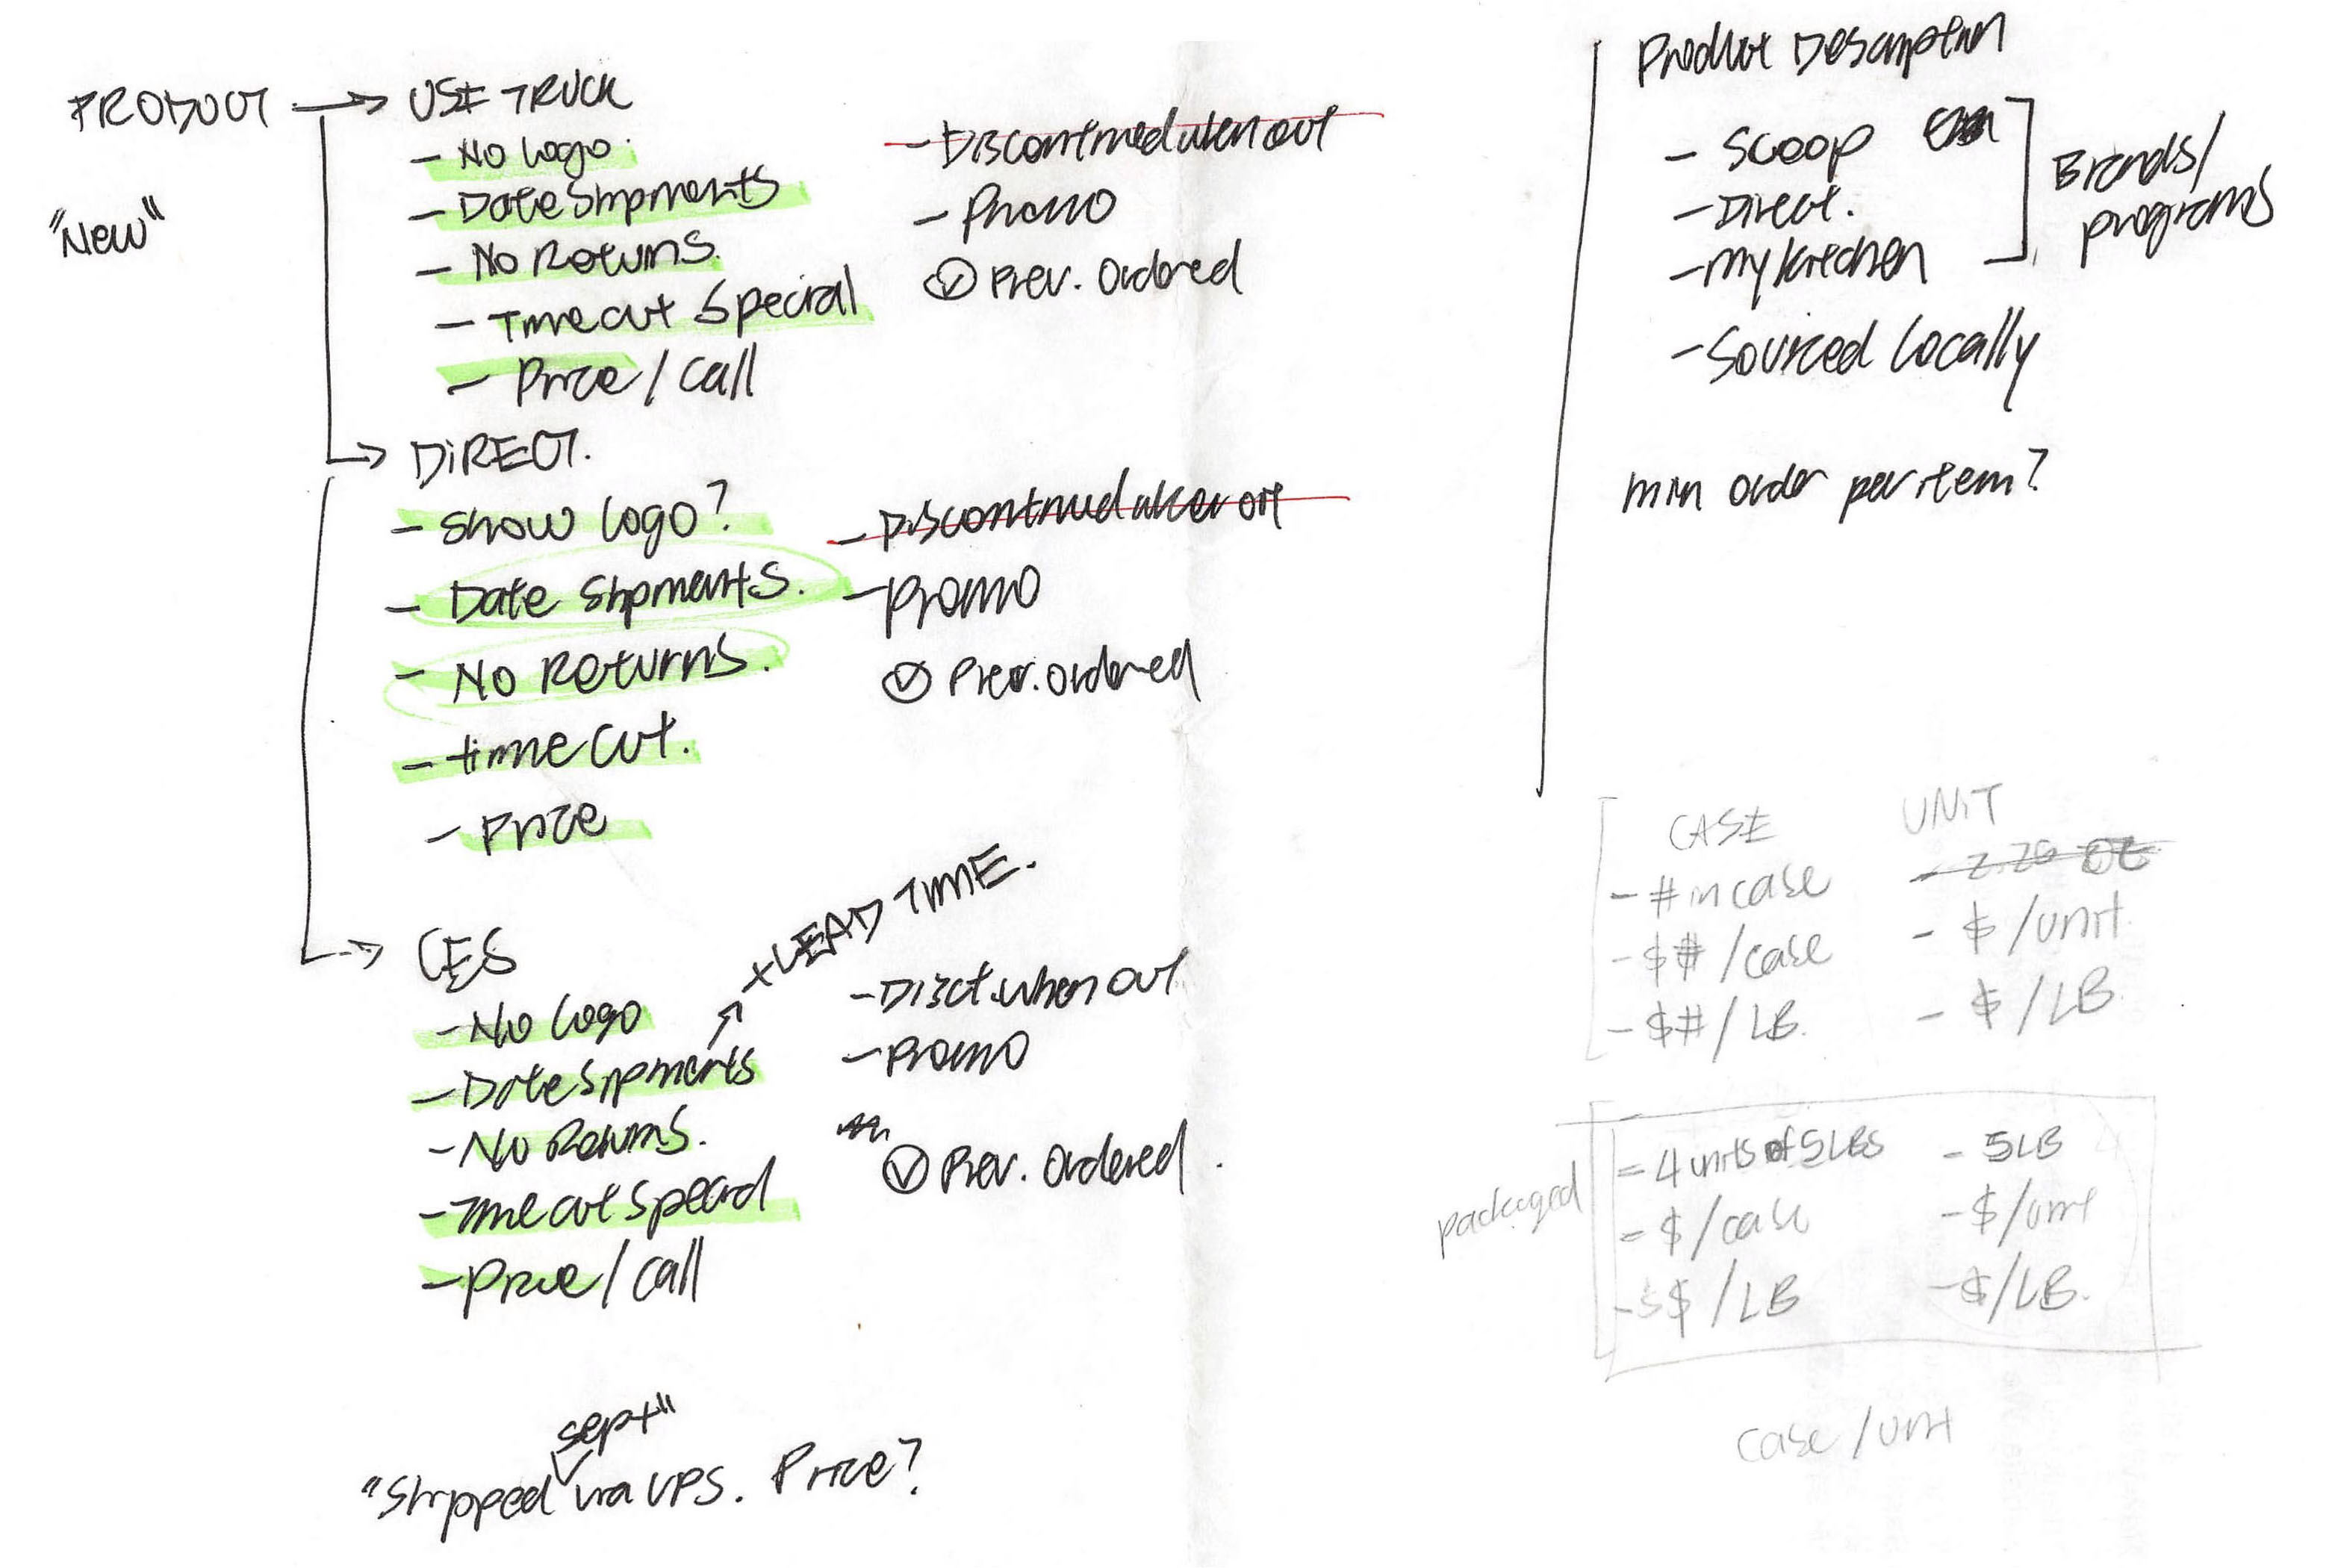 PRODUCT → USE TRUCK
"New"
- No Logo.
- Date Shipments
- No Returns.
- Time cut Special
- Price / Call
- Discontinued when out
- Promo
Prev. Ordered
→ DIRECT.
- Show Logo?
- Date Shipments.
- No Returns.
- time cut.
- Price
- Discontinued when out
- Promo
Prev. ordered
→ CES
+ LEAD TIME.
- No Logo
- Date Sipments
- No Returns.
- Time cut Special
- Price / Call
- Disct. when out
- Promo
Prev. Ordered.
sept"
"Shipped via UPS. Price?
Product Description
- Scoop
- Direct.
- my kitchen
Brands/
programs
- Sourced Locally
min order per item?
CASE
- # in case
- $# /case
- $# / LB.
UNIT
- 2.25 OZ
- $ /unit
- $ / LB
packaged
= 4 units of 5 LBS
= $ / case
- $ / LB
- 5 LB
- $ /unit
- $ /LB.
case / unit